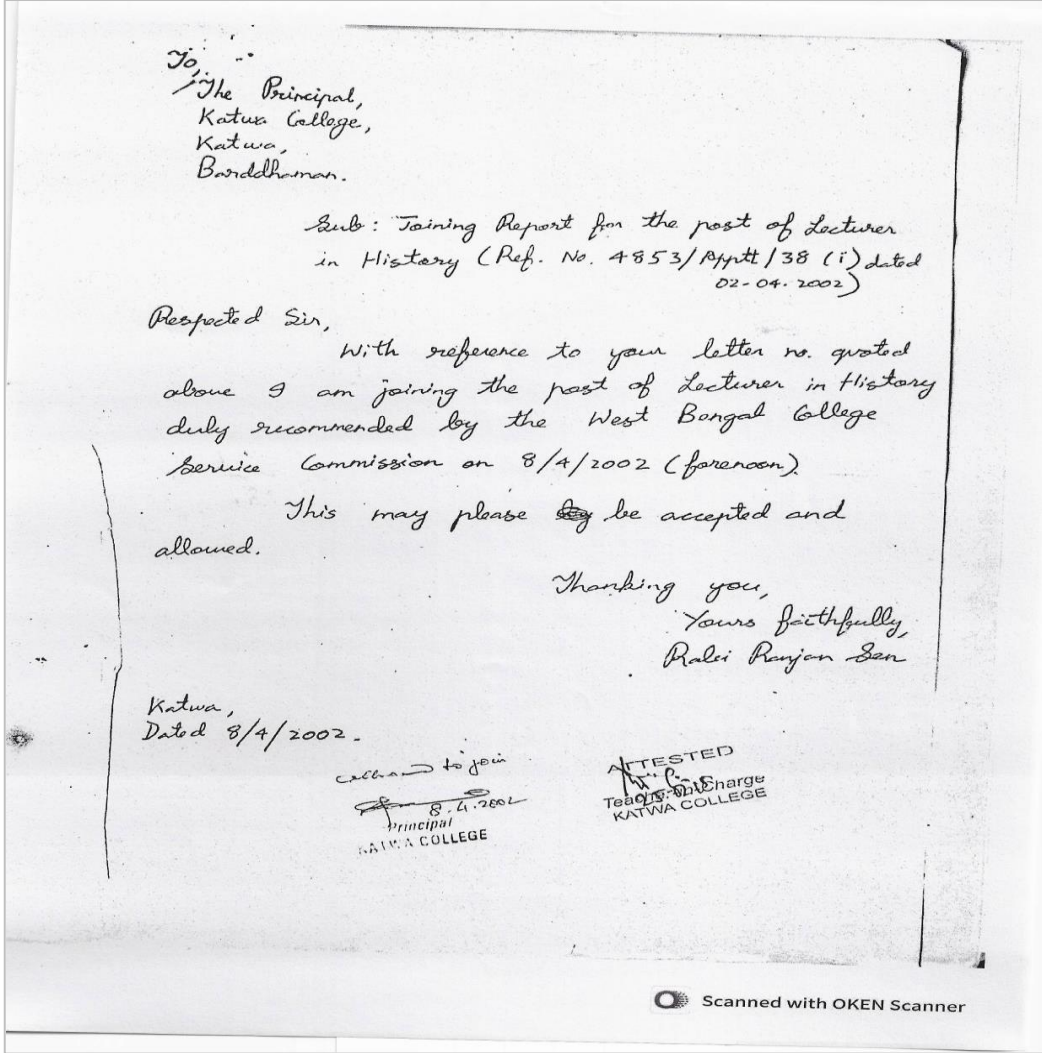 To,
The Principal,
Katwa College,
Katwa,
Barddhaman.
Sub: Joining Report for the post of Lecturer
in History (Ref. No. 4853/Apptt/38 (i) dated
02-04-2002)
Respected Sir,
With reference to your letter no. quoted
above I am joining the post of Lecturer in History
duly recommended by the West Bengal College
Service Commission on 8/4/2002 (forenoon).
This may please be accepted and
allowed.
Thanking you,
Yours faithfully,
Rabi Ranjan Sen
Katwa,
Dated 8/4/2002.
to join
8.4.2002
Principal
KATWA COLLEGE
ATTESTED
Teacher-in-Charge
KATWA COLLEGE
Scanned with OKEN Scanner